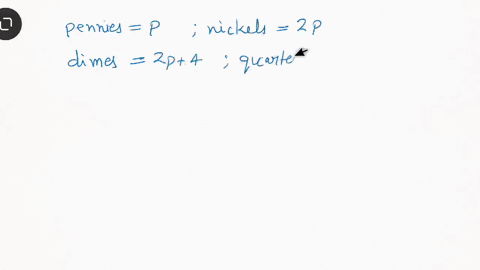 pennies = p ; nickels = 2p
dimes = 2p+4 ; quarte